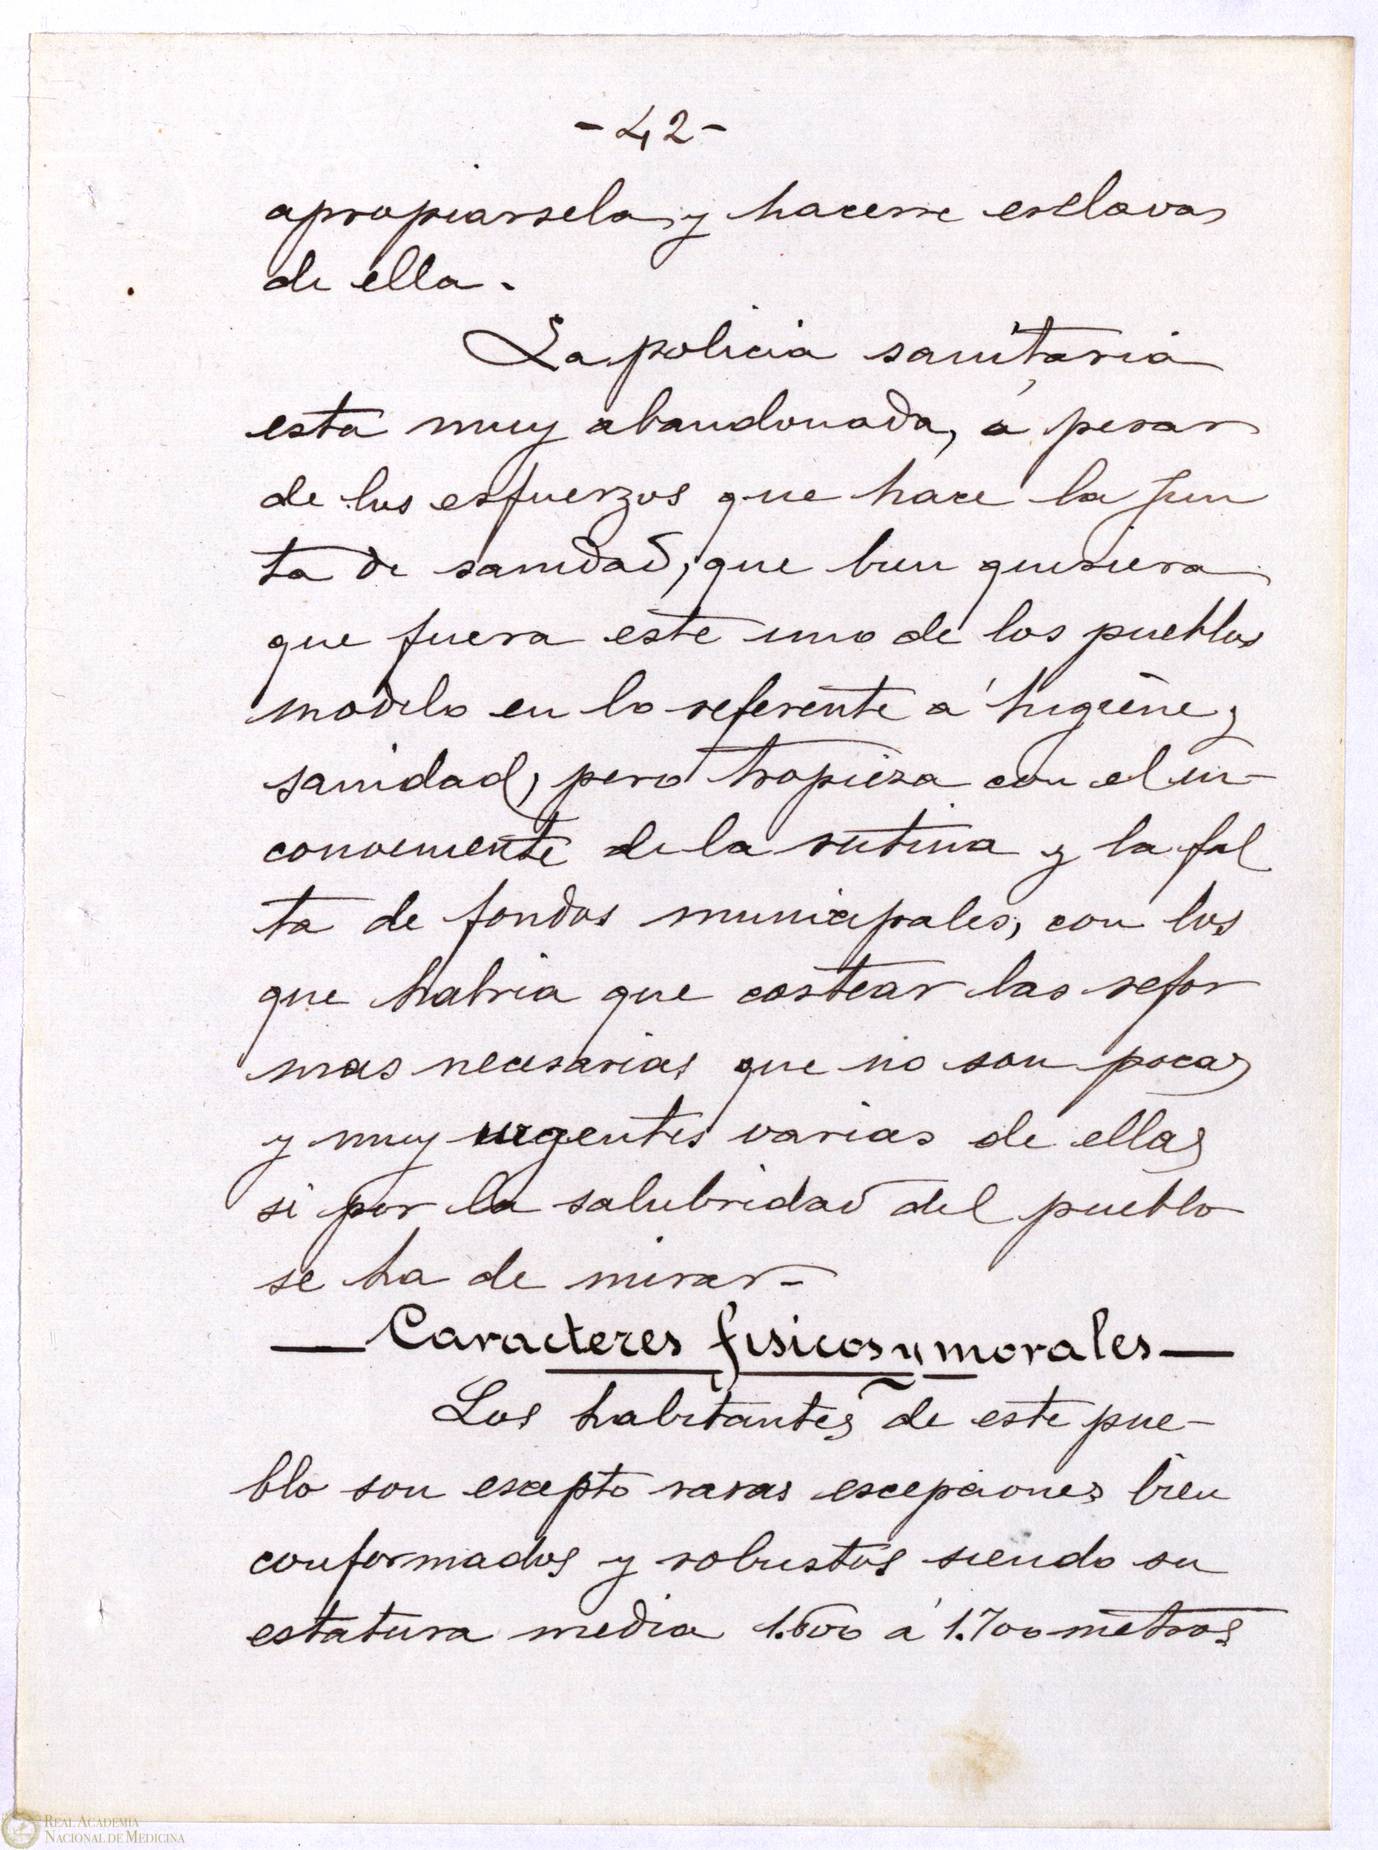 - 42 -
apropiarsela y hacerse esclavas
de ella.
La policia sanitaria
esta muy abandonada, á pesar
de los esfuerzos que hace la Jun
ta de sanidad, que bien quisiera
que fuera este uno de los pueblos
modelo en lo referente á higiene y
sanidad, pero tropieza con el in-
conveniente de la rutina y la fal
ta de fondos municipales, con los
que habria que costear las refor
mas necesarias que no son pocas
y muy urgentes varias de ellas
si por la salubridad del pueblo
se ha de mirar-
— Caracteres fisicos y morales —
Los habitantes de este pue-
blo son escepto raras escepciones bien
conformados y robustos siendo su
estatura media 1.600 á 1.700 metros
REAL ACADEMIA
NACIONAL DE MEDICINA